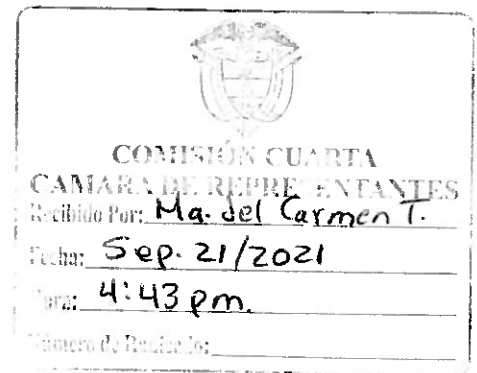 COMISIÓN CUARTA
CAMARA DE REPRESENTANTES
Recibido Por: Ma. del Carmen T.
Fecha: Sep. 21/2021
Hora: 4:43 pm.
Número de Radicado: